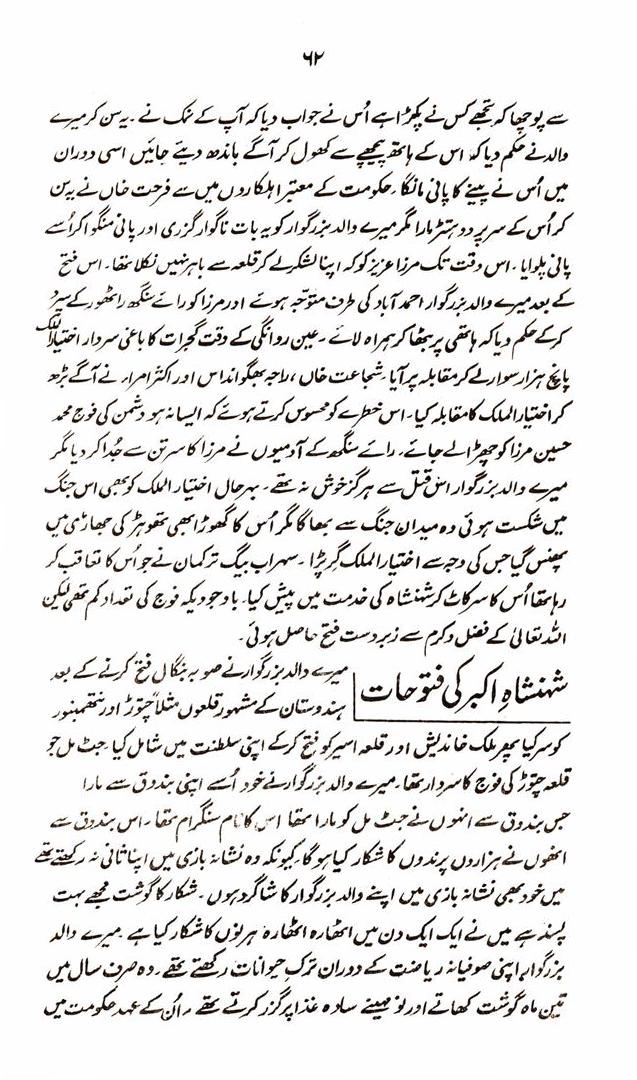 ۶۲
سے پوچھا کہ تجھے کس نے پکڑا ہے اُس نے جواب دیا کہ آپ کے نمک نے ۔ یہ سن کر میرے
والد نے حکم دیا کہ اس کے ہاتھ پیچھے سے کھول کر آگے باندھ دیئے جائیں اسی دوران
میں اُس نے پینے کا پانی مانگا ۔ حکومت کے معتبر اہلکاروں میں سے فرحت خاں نے یہ سن
کر اُس کے سر پر دو ہتڑ مارا مگر میرے والد بزرگوار کو یہ بات ناگوار گزری اور پانی منگوا کر اُسے
پانی پلوایا ۔ اس وقت تک مرزا عزیز کوکہ اپنا لشکر لے کر قلعہ سے باہر نہیں نکلا تھا ۔ اس فتح
کے بعد میرے والد بزرگوار احمد آباد کی طرف متوجہ ہوئے اور مرزا کو رائے سنگھ راٹھور کے سپرد
کر کے حکم دیا کہ ہاتھی پر بٹھا کر ہمراہ لائے ۔ عین روانگی کے وقت گجرات کا باغی سردار اختیار الملک
پانچ ہزار سوار لے کر مقابلہ پر آیا ۔ شجاعت خاں ، راجہ بھگوانداس اور اکثر امراء نے آگے بڑھ
کر اختیار الملک کا مقابلہ کیا ۔ اس خطرے کو محسوس کرتے ہوئے کہ ایسا نہ ہو دشمن کی فوج محمد
حسین مرزا کو چھڑا لے جائے ۔ رائے سنگھ کے آدمیوں نے مرزا کا سر تن سے جُدا کر دیا مگر
میرے والد بزرگوار اس قتل سے ہرگز خوش نہ تھے ۔ بہرحال اختیار الملک کو بھی اس جنگ
میں شکست ہوئی وہ میدان جنگ سے بھاگا مگر اُس کا گھوڑا بھی تھوہڑ کی جھاڑی میں
پھنس گیا جس کی وجہ سے اختیار الملک گر پڑا ۔ سہراب بیگ ترکمان نے جو اُس کا تعاقب کر
رہا تھا اُس کا سر کاٹ کر شہنشاہ کی خدمت میں پیش کیا ۔ باوجودیکہ فوج کی تعداد کم تھی لیکن
اللہ تعالیٰ کے فضل و کرم سے زبردست فتح حاصل ہوئی ۔
شہنشاہِ اکبر کی فتوحات
میرے والد بزرگوار نے صوبہ بنگال فتح کرنے کے بعد
ہندوستان کے مشہور قلعوں مثلاً چتوڑ اور رنتھمبور
کو سر کیا پھر ملک خاندیش اور قلعہ اسیر کو فتح کر کے اپنی سلطنت میں شامل کیا ۔ جٹ مل جو
قلعہ چتوڑ کی فوج کا سردار تھا ۔ میرے والد بزرگوار نے خود اُسے اپنی بندوق سے مارا
جس بندوق سے انہوں نے جٹ مل کو مارا تھا اس کا نام سنگرام تھا ۔ اس بندوق سے
انھوں نے ہزاروں پرندوں کا شکار کیا ہو گا کیونکہ وہ نشانہ بازی میں اپنا ثانی نہ رکھتے تھے
میں خود بھی نشانہ بازی میں اپنے والد بزرگوار کا شاگرد ہوں ۔ شکار کا گوشت مجھے بہت
پسند ہے میں نے ایک ایک دن میں اٹھارہ اٹھارہ ہرنوں کا شکار کیا ہے میرے والد
بزرگوار اپنی صوفیانہ ریاضت کے دوران ترکِ حیوانات رکھتے تھے ۔ وہ صرف سال میں
تین ماہ گوشت کھاتے اور نو مہینے سادہ غذا پر گزر کرتے تھے ۔ اُن کے عہد حکومت میں